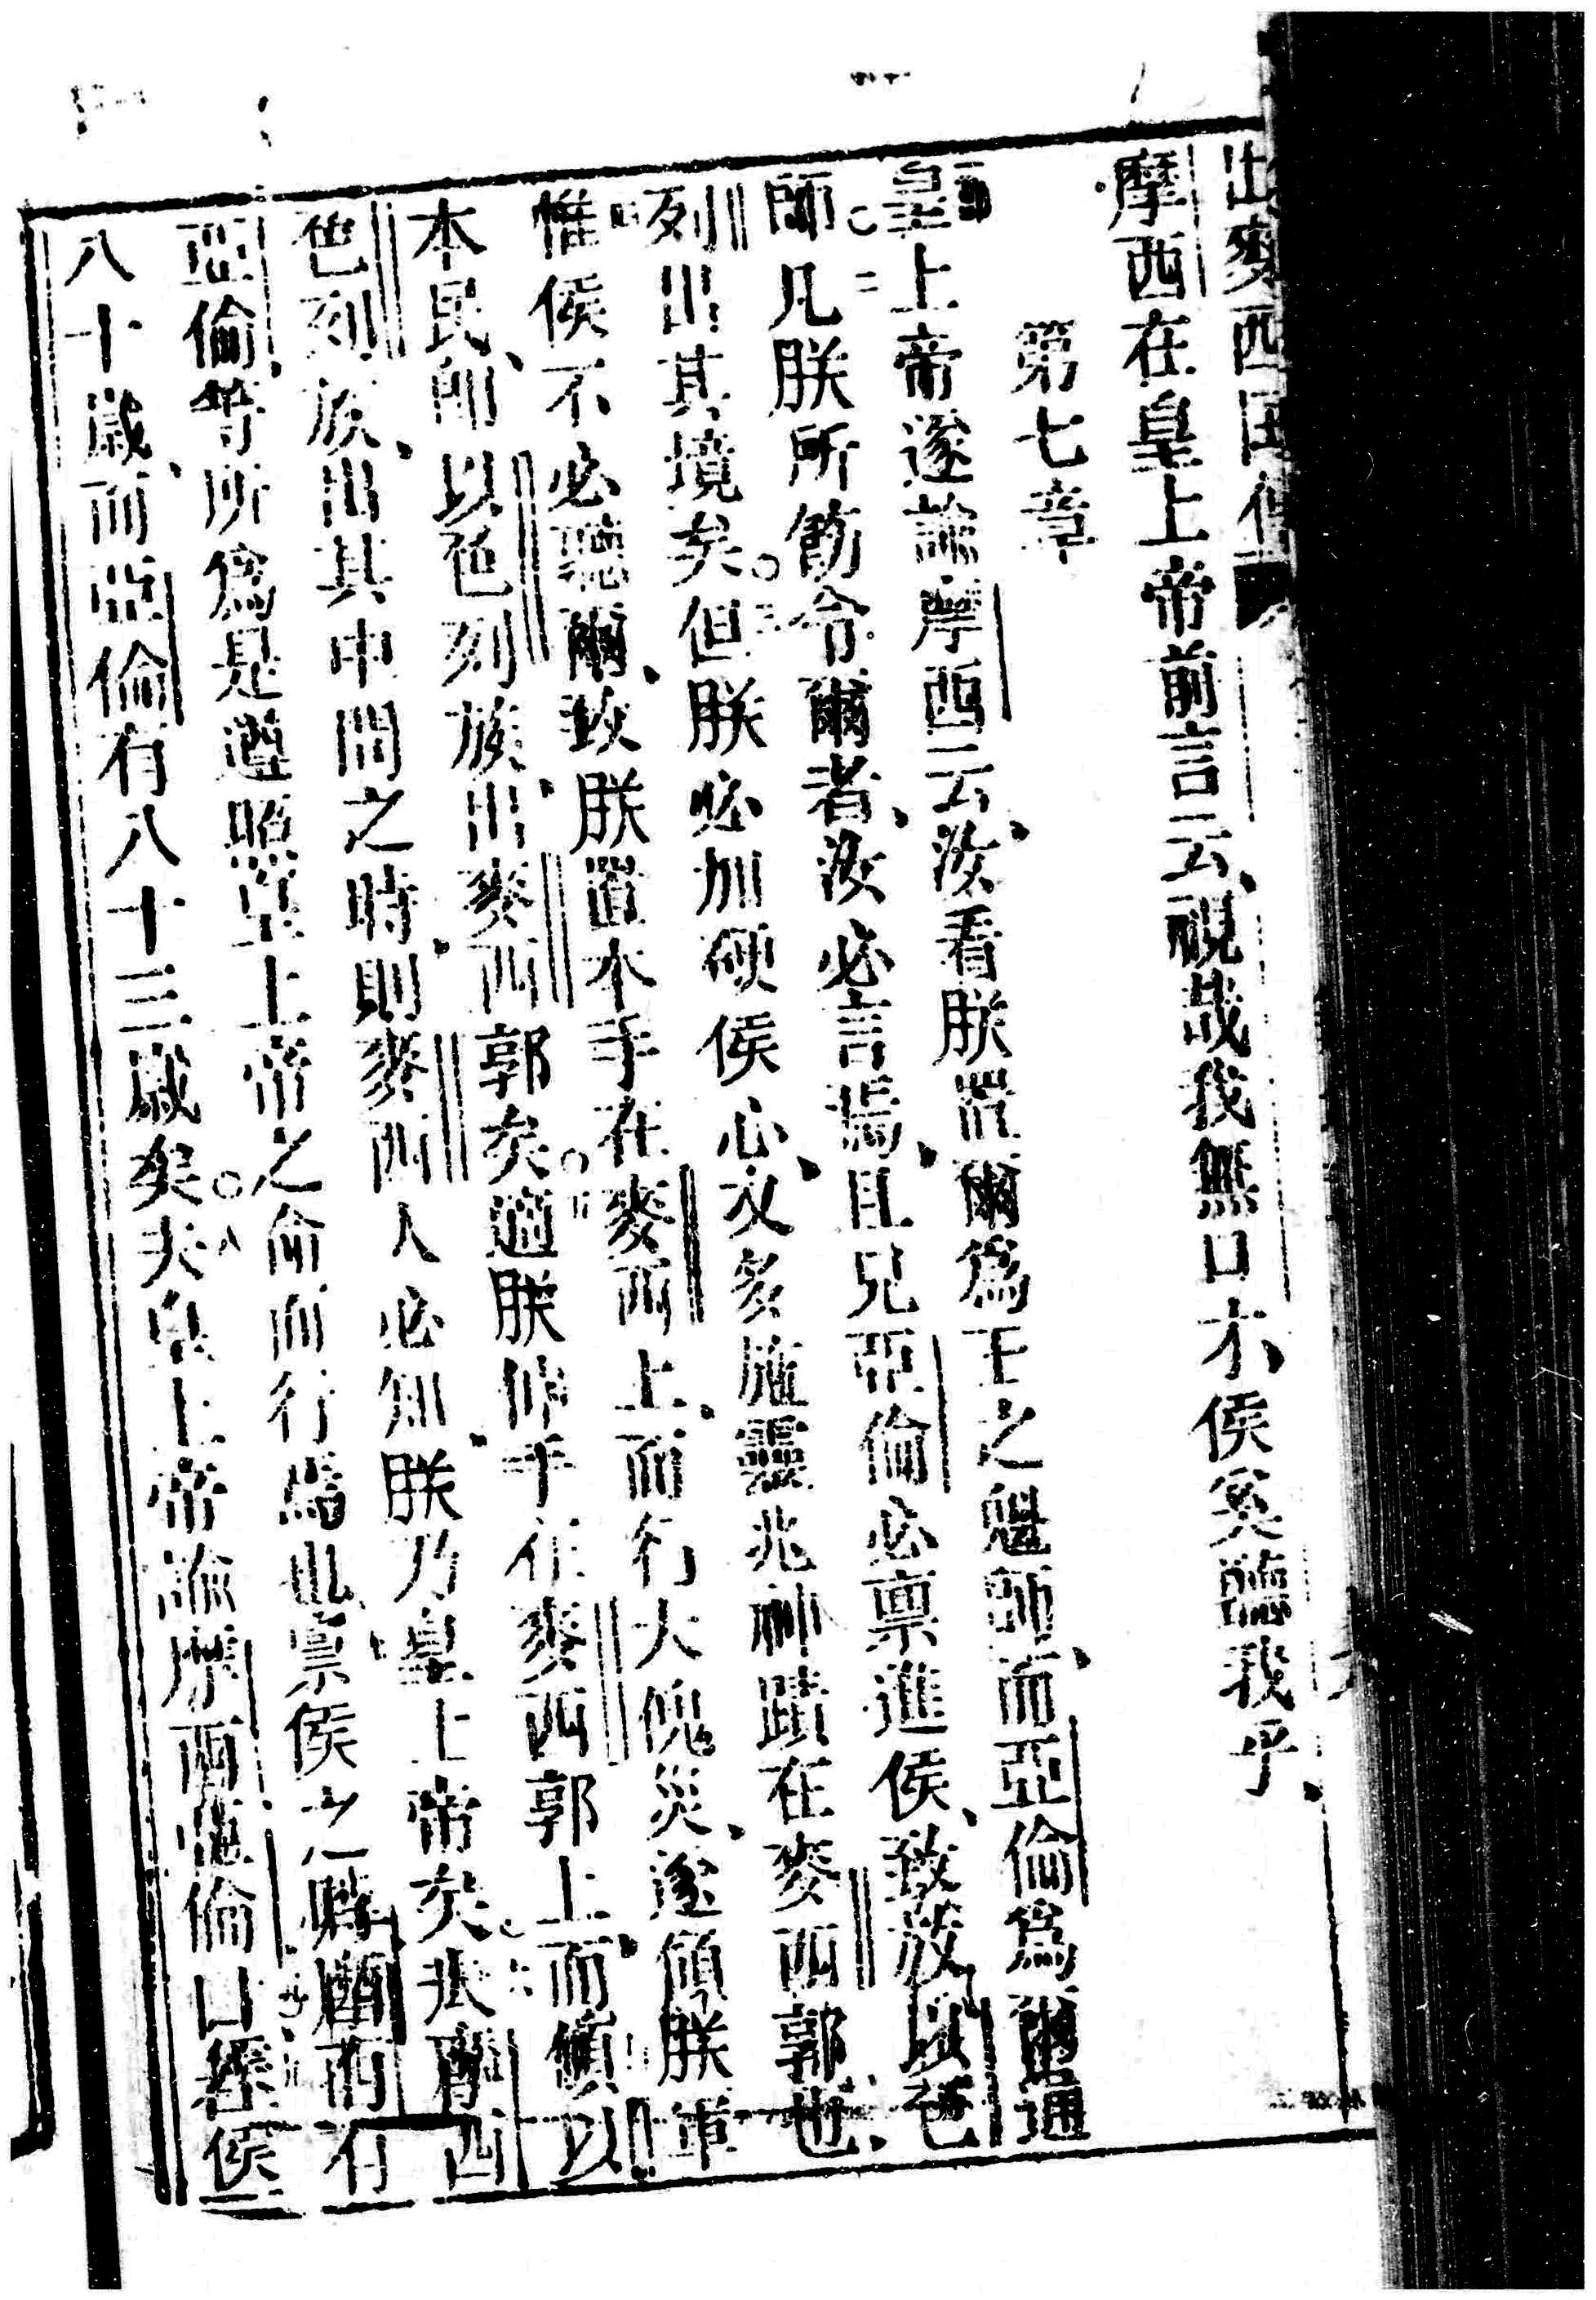 出麥西囯傳
摩西在皇上帝前言云、視哉我無口才、侯奚聽我乎、
第七章
皇上帝遂諭摩西云、汝看朕置爾爲王之魁師、而亞倫爲爾通
師。二凡朕所飭令爾者、汝必言焉、且兄亞倫必禀進侯、致放以色
列出其境矣。三但朕必加硬侯心、又多施靈兆神蹟在麥西郭也、
惟侯不必聽爾、致朕置本手在麥西上、而行大愧災、遂傾朕軍
本民、卽以色列族、出麥西郭矣。五適朕伸手在麥西郭上、而傾以
色列族、出其中間之時、則麥西人必知朕乃皇上帝矣。六夫摩西
亞倫等所爲、是遵照皇上帝之命而行焉。七此禀侯之時、摩西有
八十歲、而亞倫有八十三歲矣。八夫皇上帝諭摩西亞倫曰、若侯